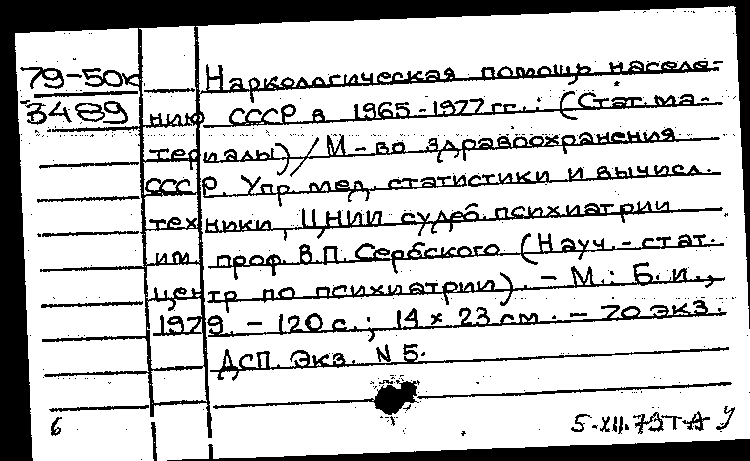 79-50к
3489
Наркологическая помощь населе-
нию СССР в 1965-1977 гг.: (Стат. ма-
териалы) / М-во здравоохранения
СССР. Упр. мед. статистики и вычисл.
техники, ЦНИИ судеб. психиатрии
им. проф. В.П. Сербского (Науч.-стат.
центр по психиатрии). - М.: Б. и.,
1979. - 120 с.; 14 x 23 см. - 70 экз.
ДСП. Экз. N 5.
6
5-XII.79